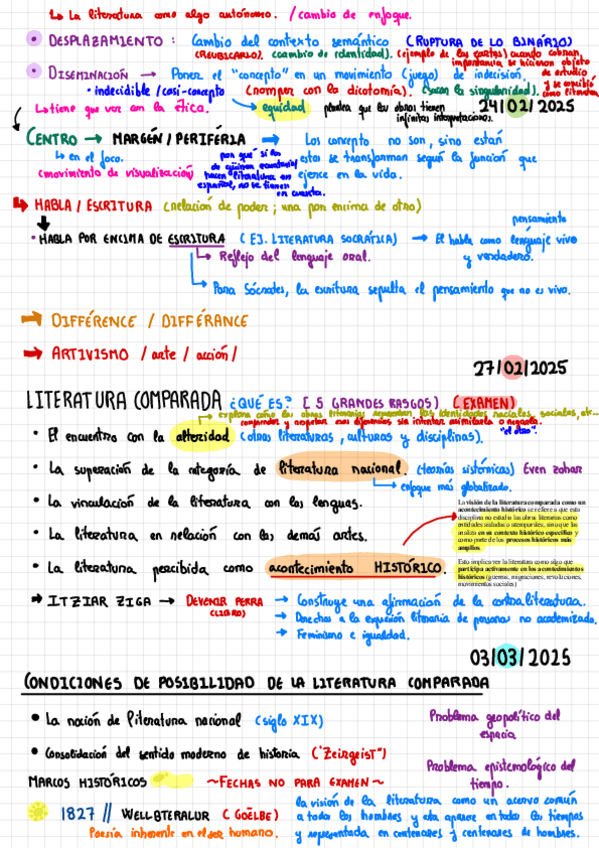 ↳ La literatura como algo autónomo. / cambio de enfoque.
• DESPLAZAMIENTO : Cambio del contexto semántico (RUPTURA DE LO BINÁRIO)
(REUBICARLO). (cambio de identidad). (ejemplo de las cartas) cuando cobran importancia se hicieron objeto de estudio y se convirtió como literatura.
• DISEMINACIÓN → Poner el "concepto" en un movimiento (juego) de indecisión.
• indecidible / casi-concepto (romper con la dicotomía). (sacan la singularidad).
↳ tiene que ver con la ética. ↳ equidad plantea que las obras tienen infinitas interpretaciones.
24/02/2025
CENTRO → MARGEN / PERIFÉRIA ⇒ Los concepto no son, sino están
↳ en el foco. estos se transforman según la función que
(movimiento de visualización) ejerce en la vida.
por qué si los de guinea ecuatorial hacen literatura en español, no se tienen en cuenta.
HABLA / ESCRITURA (relación de poder ; una pon encima de otro)
• HABLA POR ENCIMA DE ESCRITURA (EJ. LITERATURA SOCRÁTICA) → El habla como lenguaje vivo
pensamiento
y verdadero.
↳ Reflejo del lenguaje oral.
↳ Para Sócrates, la escritura sepulta el pensamiento que no es vivo.
→ DIFFÉRENCE / DIFFÉRANCE
→ ARTIVISMO / arte / acción /
27/02/2025
LITERATURA COMPARADA ¿QUÉ ES? [5 GRANDES RASGOS) (EXAMEN)
→ explora cómo las obras literarias representan las identidades raciales, sociales, etc...
comprender y respetar esas diferencias sin intentar asimilarla o negarla.
• El encuentro con la alteridad (otras literaturas, culturas y disciplinas). "el otro"
• La superación de la categoría de literatura nacional. (teorías sistémicas) Even zohar
↳ enfoque más globalizado.
• La vinculación de la literatura con las lenguas.
• La literatura en relación con las demás artes.
• La literatura percibida como acontecimiento HISTÓRICO.
La visión de la literatura comparada como un
acontecimiento histórico se refiere a que esta
disciplina no estudia las obras literarias como
entidades aisladas o atemporales, sino que las
analiza en su contexto histórico específico y
como parte de los procesos históricos más
amplios.
Esto implica ver la literatura como algo que
participa activamente en los acontecimientos
históricos (guerras, migraciones, revoluciones,
movimientos sociales)
→ ITZIAR ZIGA → DEVENIR PERRA → Construye una afirmación de la contraliteratura.
(LIBRO) → Derechos a la expresión literaria de personas no academizada.
→ Feminismo e igualdad.
03/03/2025
CONDICIONES DE POSIBILIDAD DE LA LITERATURA COMPARADA
• La noción de literatura nacional (siglo XIX) Problema geopolítico del
espacio
• Consolidación del sentido moderno de historia ("Zeirgeist") Problema epistemológico del
tiempo.
MARCOS HISTÓRICOS ~FECHAS NO PARA EXAMEN~
1827 // WELLBTERALUR (GOËLBE) la visión de la literatura como un acervo común
a todos los hombres y ella aparece en todos los tiempos
Poesía inherente en el ser humano. y representada en centenares y centenares de hombres.